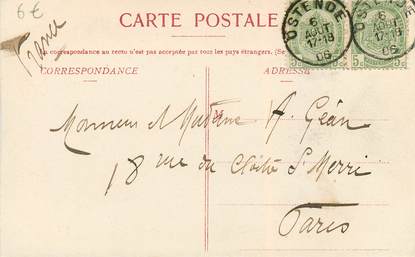 6€
CARTE POSTALE
France
La correspondance au recto n'est pas acceptée par tous les pays étrangers. (Se
CORRESPONDANCE
ADRESSE
OSTENDE
6
AOUT
17-18
06
OSTENDE
6
17-18
06
5c
5c
M
Monsieur et Madame A. Géan
18 rue du Cloître St Merri
Paris